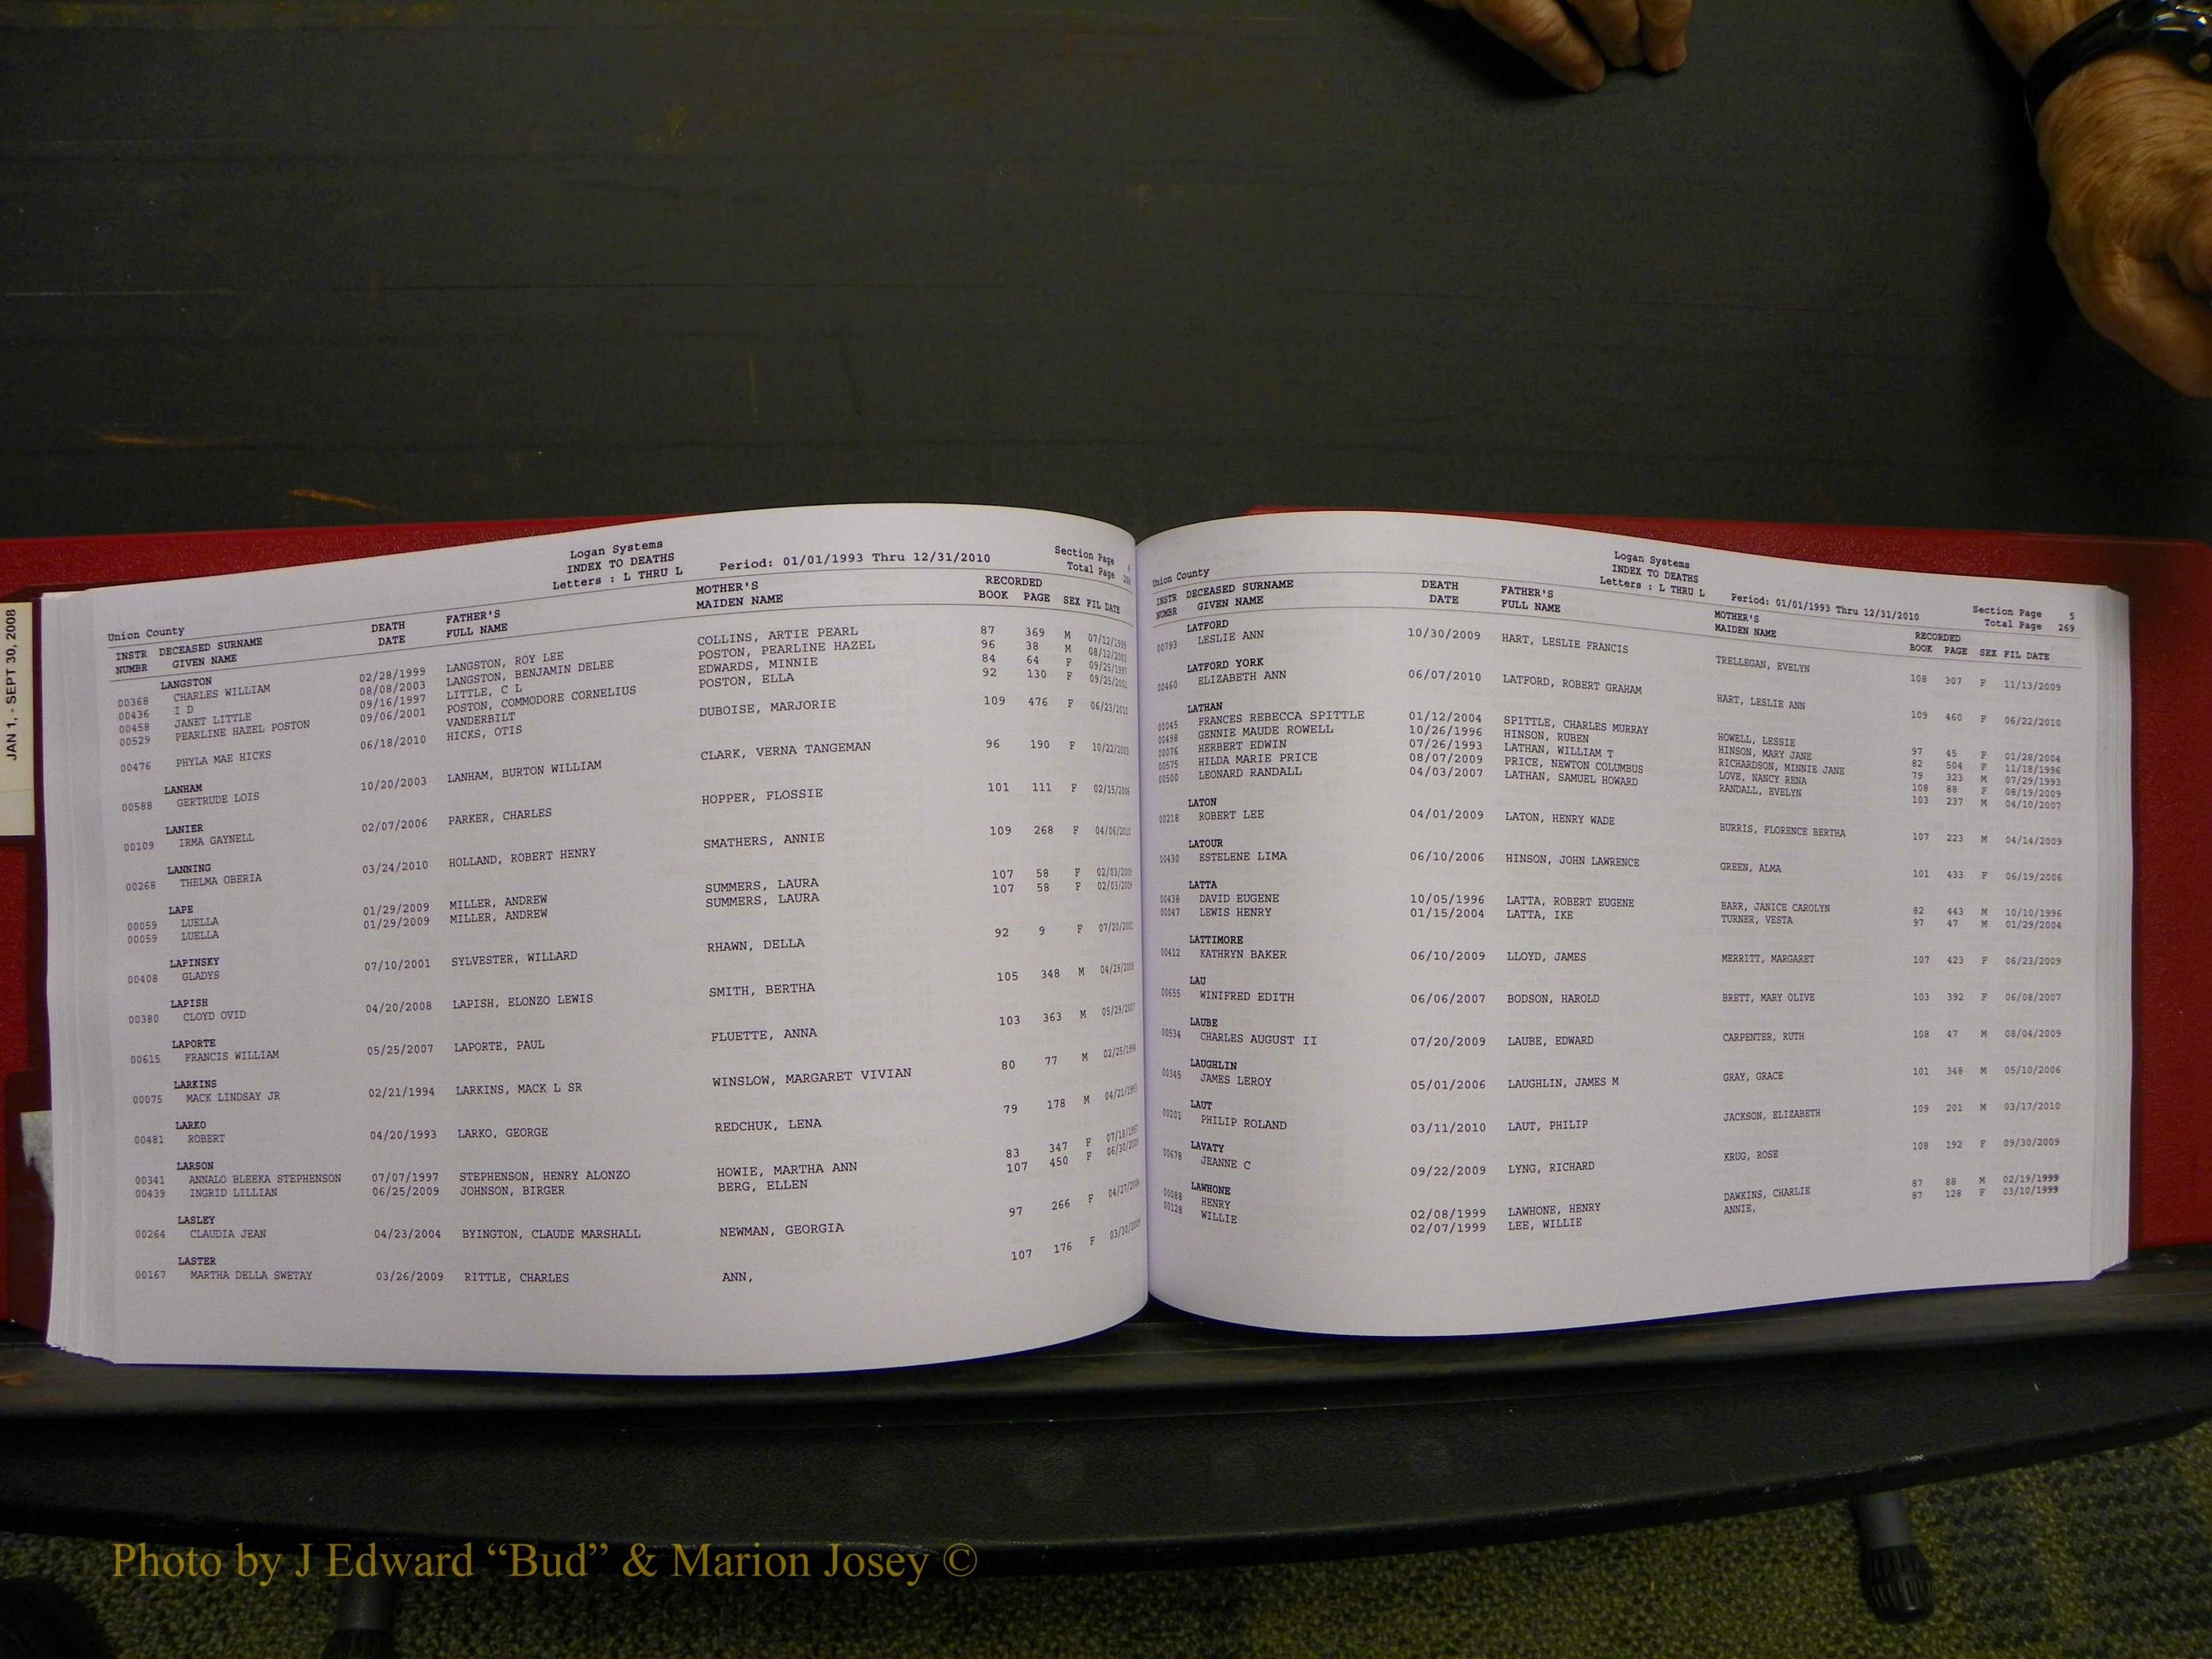 JAN 1, - SEPT 30, 2008
Logan Systems
INDEX TO DEATHS
Letters : L THRU L
Period: 01/01/1993 Thru 12/31/2010
Section Page
Total Page
Union County
INSTR DECEASED SURNAME DEATH FATHER'S MOTHER'S RECORDED
NUMBR GIVEN NAME DATE FULL NAME MAIDEN NAME BOOK PAGE SEX FIL DATE
LANGSTON
00368 CHARLES WILLIAM 02/28/1999 LANGSTON, ROY LEE COLLINS, ARTIE PEARL 87 369 M 07/12/1999
00436 I D 08/08/2003 LANGSTON, BENJAMIN DELEE POSTON, PEARLINE HAZEL 96 38 M 08/12/2003
00458 JANET LITTLE 09/16/1997 LITTLE, C L EDWARDS, MINNIE 84 64 F 09/25/1997
00529 PEARLINE HAZEL POSTON 09/06/2001 POSTON, COMMODORE CORNELIUS POSTON, ELLA 92 130 F 09/25/2001
VANDERBILT
00476 PHYLA MAE HICKS 06/18/2010 HICKS, OTIS DUBOISE, MARJORIE 109 476 F 06/23/2010
LANHAM
00588 GERTRUDE LOIS 10/20/2003 LANHAM, BURTON WILLIAM CLARK, VERNA TANGEMAN 96 190 F 10/22/2003
LANIER
00109 IRMA GAYNELL 02/07/2006 PARKER, CHARLES HOPPER, FLOSSIE 101 111 F 02/15/2006
LANNING
00268 THELMA OBERIA 03/24/2010 HOLLAND, ROBERT HENRY SMATHERS, ANNIE 109 268 F 04/06/2010
LAPE
00059 LUELLA 01/29/2009 MILLER, ANDREW SUMMERS, LAURA 107 58 F 02/03/2009
00059 LUELLA 01/29/2009 MILLER, ANDREW SUMMERS, LAURA 107 58 F 02/03/2009
LAPINSKY
00408 GLADYS 07/10/2001 SYLVESTER, WILLARD RHAWN, DELLA 92 9 F 07/20/2001
LAPISH
00380 CLOYD OVID 04/20/2008 LAPISH, ELONZO LEWIS SMITH, BERTHA 105 348 M 04/29/2008
LAPORTE
00615 FRANCIS WILLIAM 05/25/2007 LAPORTE, PAUL FLUETTE, ANNA 103 363 M 05/29/2007
LARKINS
00075 MACK LINDSAY JR 02/21/1994 LARKINS, MACK L SR WINSLOW, MARGARET VIVIAN 80 77 M 02/25/1994
LARKO
00481 ROBERT 04/20/1993 LARKO, GEORGE REDCHUK, LENA 79 178 M 04/21/1993
LARSON
00341 ANNALO BLEEKA STEPHENSON 07/07/1997 STEPHENSON, HENRY ALONZO HOWIE, MARTHA ANN 83 347 F 07/18/1997
00439 INGRID LILLIAN 06/25/2009 JOHNSON, BIRGER BERG, ELLEN 107 450 F 06/30/2009
LASLEY
00264 CLAUDIA JEAN 04/23/2004 BYINGTON, CLAUDE MARSHALL NEWMAN, GEORGIA 97 266 F 04/27/2004
LASTER
00167 MARTHA DELLA SWETAY 03/26/2009 RITTLE, CHARLES ANN, 107 176 F 03/30/2009
Logan Systems
INDEX TO DEATHS
Letters : L THRU L
Period: 01/01/1993 Thru 12/31/2010
Section Page 5
Total Page 269
Union County
INSTR DECEASED SURNAME DEATH FATHER'S MOTHER'S RECORDED
NUMBR GIVEN NAME DATE FULL NAME MAIDEN NAME BOOK PAGE SEX FIL DATE
LATFORD
00793 LESLIE ANN 10/30/2009 HART, LESLIE FRANCIS TRELLEGAN, EVELYN 108 307 F 11/13/2009
LATFORD YORK
00460 ELIZABETH ANN 06/07/2010 LATFORD, ROBERT GRAHAM HART, LESLIE ANN 109 460 F 06/22/2010
LATHAN
00045 FRANCES REBECCA SPITTLE 01/12/2004 SPITTLE, CHARLES MURRAY HOWELL, LESSIE 97 45 F 01/28/2004
00498 GENNIE MAUDE ROWELL 10/26/1996 HINSON, RUBEN HINSON, MARY JANE 82 504 F 11/18/1996
00076 HERBERT EDWIN 07/26/1993 LATHAN, WILLIAM T RICHARDSON, MINNIE JANE 79 323 M 07/29/1993
00575 HILDA MARIE PRICE 08/07/2009 PRICE, NEWTON COLUMBUS LOVE, NANCY RENA 108 88 F 08/19/2009
00500 LEONARD RANDALL 04/03/2007 LATHAN, SAMUEL HOWARD RANDALL, EVELYN 103 237 M 04/10/2007
LATON
00218 ROBERT LEE 04/01/2009 LATON, HENRY WADE BURRIS, FLORENCE BERTHA 107 223 M 04/14/2009
LATOUR
00430 ESTELENE LIMA 06/10/2006 HINSON, JOHN LAWRENCE GREEN, ALMA 101 433 F 06/19/2006
LATTA
00438 DAVID EUGENE 10/05/1996 LATTA, ROBERT EUGENE BARR, JANICE CAROLYN 82 443 M 10/10/1996
00047 LEWIS HENRY 01/15/2004 LATTA, IKE TURNER, VESTA 97 47 M 01/29/2004
LATTIMORE
00412 KATHRYN BAKER 06/10/2009 LLOYD, JAMES MERRITT, MARGARET 107 423 F 06/23/2009
LAU
00655 WINIFRED EDITH 06/06/2007 BODSON, HAROLD BRETT, MARY OLIVE 103 392 F 06/08/2007
LAUBE
00534 CHARLES AUGUST II 07/20/2009 LAUBE, EDWARD CARPENTER, RUTH 108 47 M 08/04/2009
LAUGHLIN
00345 JAMES LEROY 05/01/2006 LAUGHLIN, JAMES M GRAY, GRACE 101 348 M 05/10/2006
LAUT
00201 PHILIP ROLAND 03/11/2010 LAUT, PHILIP JACKSON, ELIZABETH 109 201 M 03/17/2010
LAVATY
00678 JEANNE C 09/22/2009 LYNG, RICHARD KRUG, ROSE 108 192 F 09/30/2009
LAWHONE
00088 HENRY 02/08/1999 LAWHONE, HENRY DAWKINS, CHARLIE 87 88 M 02/19/1999
00128 WILLIE 02/07/1999 LEE, WILLIE ANNIE, 87 128 F 03/10/1999
Photo by J Edward “Bud” & Marion Josey ©